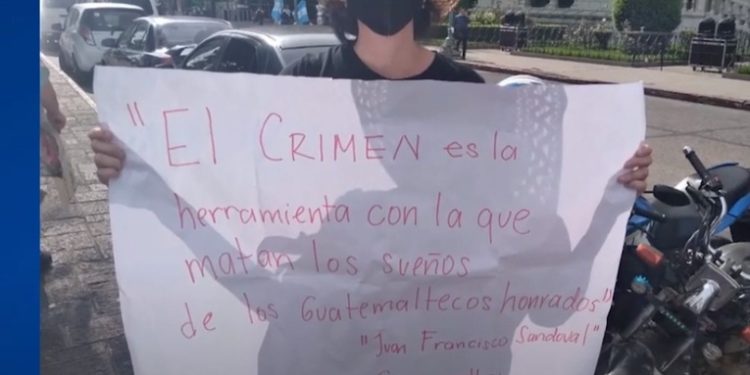 "El CRIMEN es la
herramienta con la que
matan los sueños
de los Guatemaltecos honrados"
"Juan Francisco Sandoval"